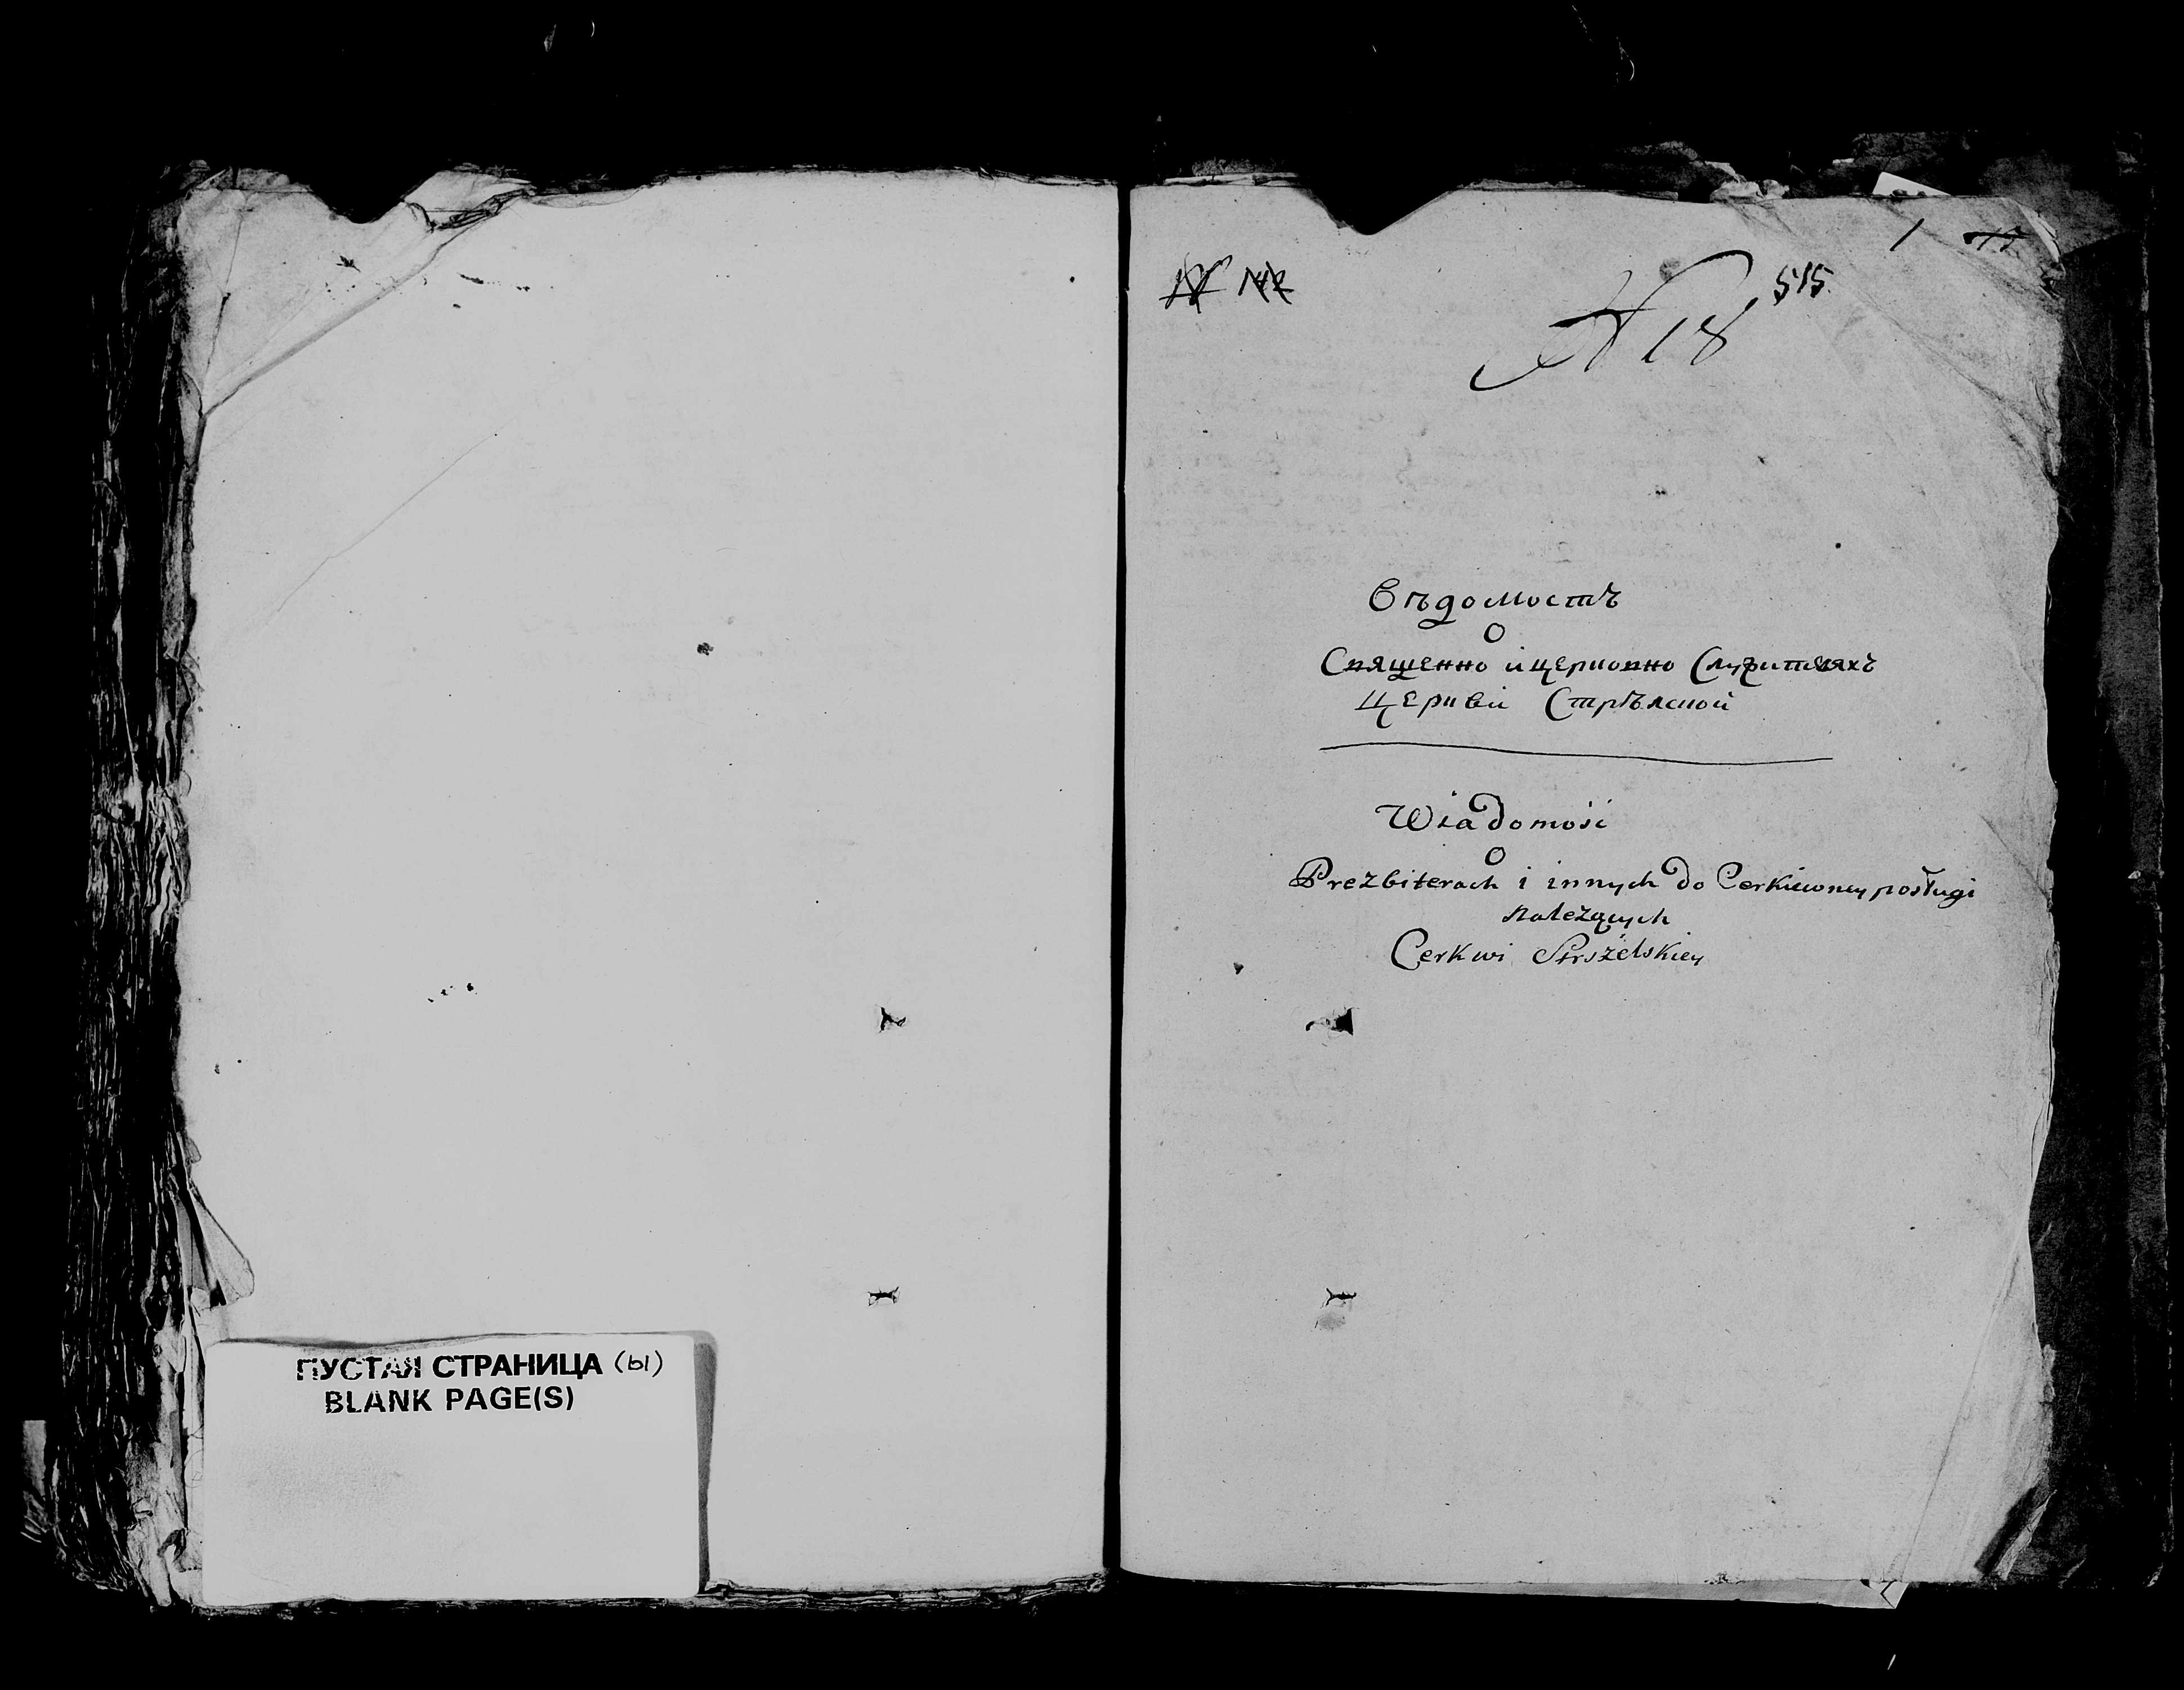 ПУСТАЯ СТРАНИЦА (ы)
BLANK PAGE(S)
1
515
N 18
Вѣдомостъ
О
Священно и церковно Служителяхъ
Церкви Стрѣлской
Wiadomość
O
Prezbiterach i innych do Cerkiewney posługi
należących
Cerkwi Strzelskiey